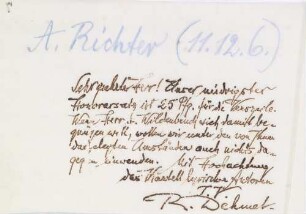 A. Richter (11.12.6.)
Sehr geehrter Herr! Unser niedrigster
Honorarsatz ist 25 Pfg. für die Verszeile.
Wenn Herr v. Woldenbruch sich damit be-
gnügen will, wollen wir unter den von Ihnen
dargelegten Umständen auch nichts da-
gegen einwenden. Mit Hochachtung
das Kartell lyrischer Autoren
I. V.
R. Dehmel.